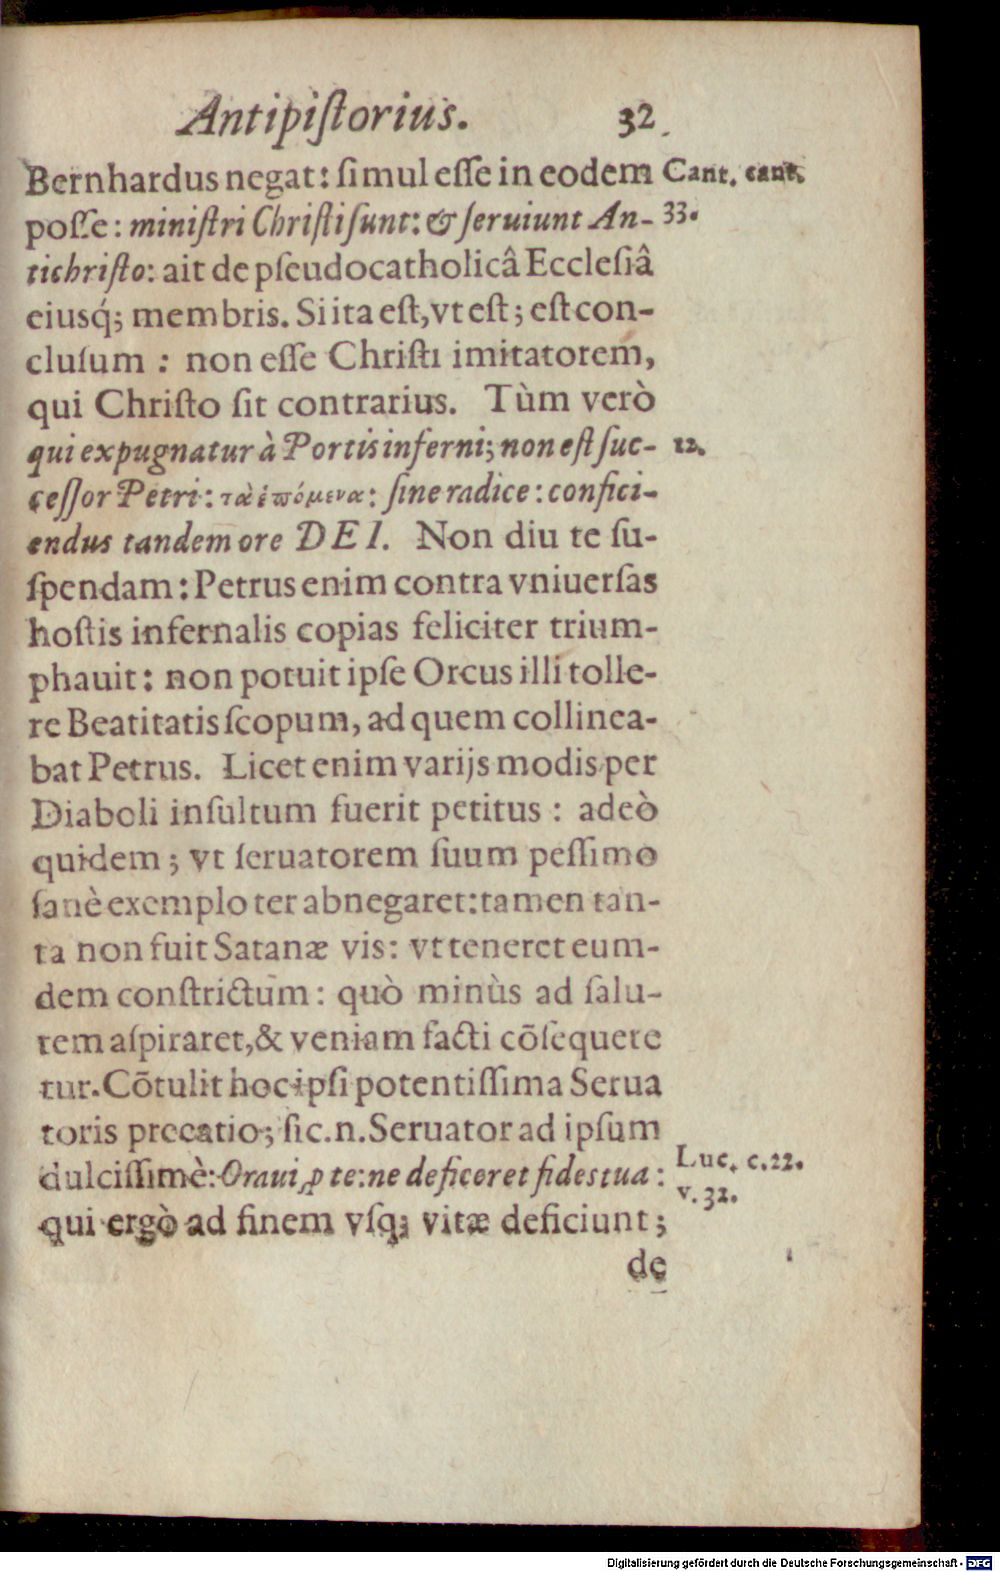 Antipiſtorius. 32
Bernhardus negat: ſimul eſſe in eodem Cant. cant.
poſſe: miniſtri Chriſti ſunt: & ſeruiunt An- 33.
tichriſto: ait de pſeudocatholicâ Eccleſiâ
eiusq́; membris. Si ita eſt, vt eſt; eſt con-
cluſum : non eſſe Chriſti imitatorem,
qui Chriſto ſit contrarius. Tùm verò
qui expugnatur à Portis inferni; non eſt ſuc- 12.
ceſſor Petri: τὰ ἑπόμενα: ſine radice: confici-
endus tandem ore DEI. Non diu te ſu-
ſpendam: Petrus enim contra vniuerſas
hoſtis infernalis copias feliciter trium-
phauit: non potuit ipſe Orcus illi tolle-
re Beatitatis ſcopum, ad quem collinea-
bat Petrus. Licet enim varijs modis per
Diaboli inſultum fuerit petitus : adeò
quidem; vt ſeruatorem ſuum peſſimo
ſanè exemplo ter abnegaret: tamen tan-
ta non fuit Satanæ vis: vt teneret eum-
dem conſtrictum: quò minùs ad ſalu-
tem aſpiraret, & veniam facti cōſequere
tur. Cōtulit hoc ipſi potentiſſima Serua
toris precatio; ſic.n. Seruator ad ipſum
dulciſſimè: Oraui ꝓ te: ne deficeret fides tua: Luc. c.22.
v. 32.
qui ergò ad finem vſq; vitæ deficiunt;
de
Digitalisierung gefördert durch die Deutsche Forschungsgemeinschaft - DFG